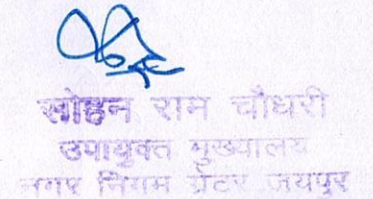 सोहन राम चौधरी
उपायुक्त मुख्यालय
नगर निगम ग्रेटर जयपुर